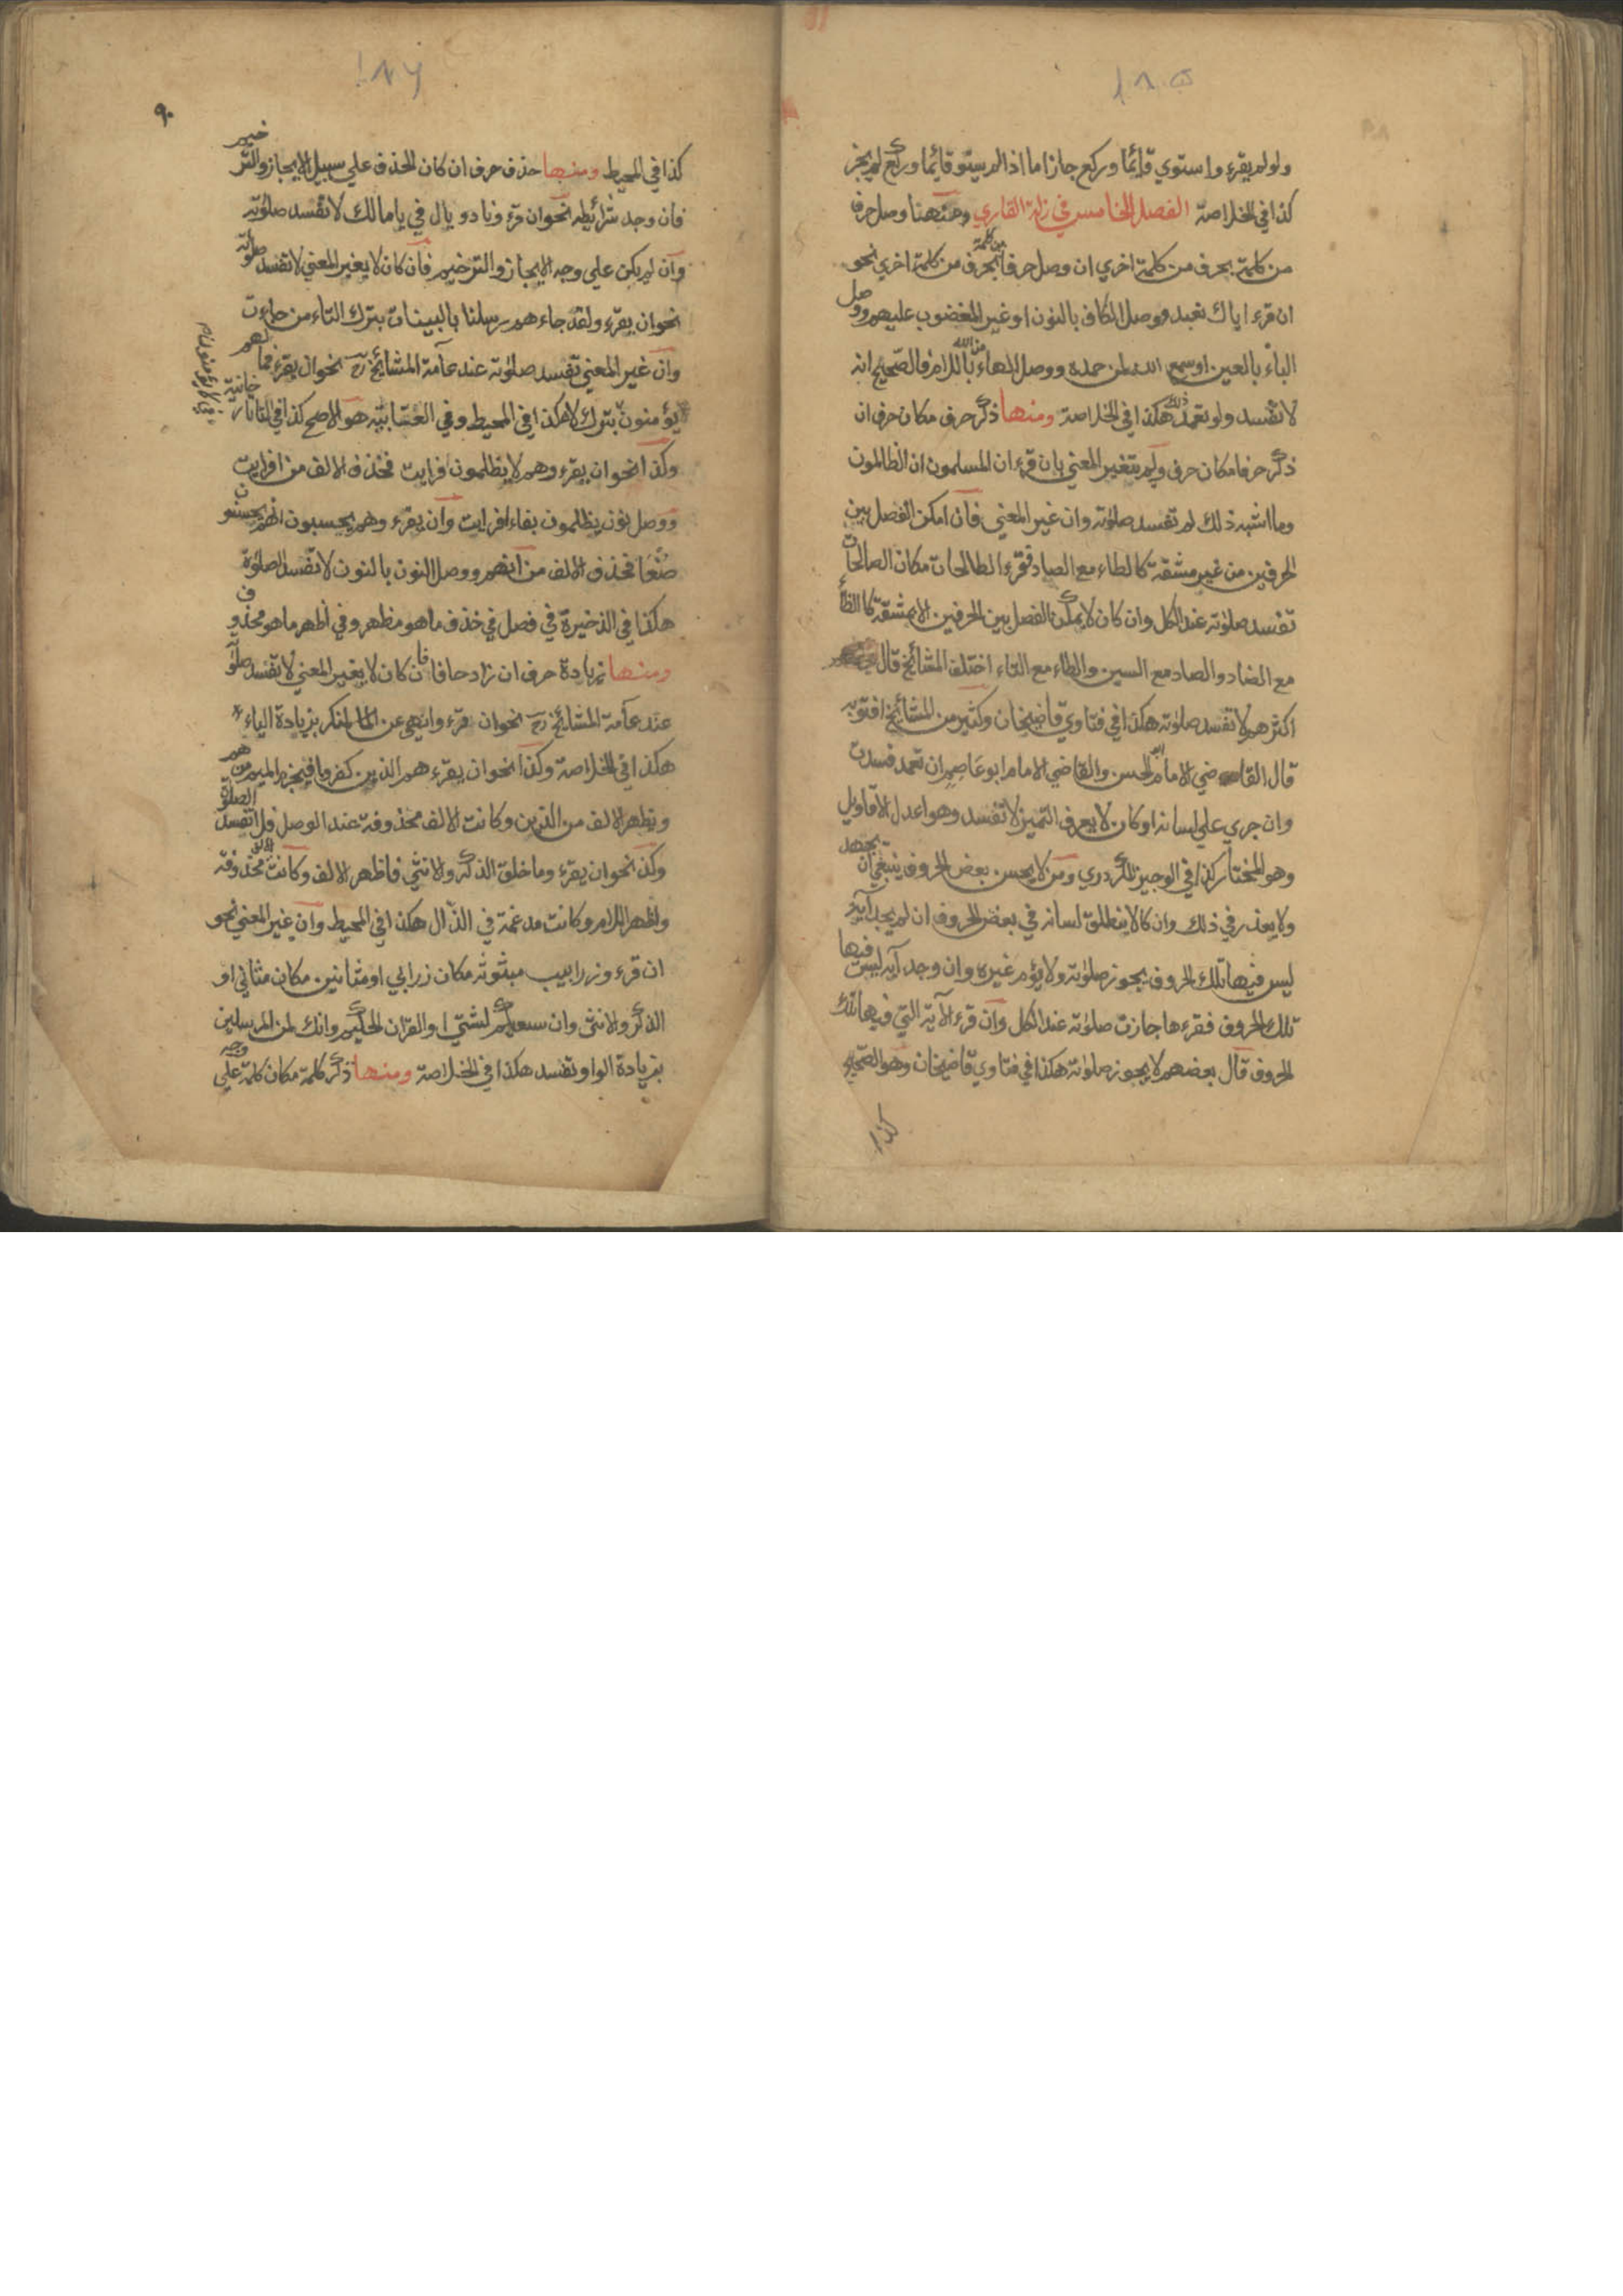 ١٨٥
ولولم يقرء واستوي قائما وركع جاز اما اذا لم يستو قائما وركع لم يجز
كذا في الخلاصة الفصل الخامس في زلة القاري ومنها وصل حرفا
من كلمة بحرف من كلمة اخري ان وصل حرفا من كلمة بحرف من كلمة اخري نحو
ان قرء اياك نعبد ووصل الكاف بالنون او غير المغضوب عليهم ووصل
الباء بالعين او سمع الله لمن حمده ووصل الهاء من الله باللام فالصحيح انه
لا تفسد ولو تعمد ذلك هكذا في الخلاصة ومنها ذكر حرف مكان حرف ان
ذكر حرفا مكان حرف ولم يتغير المعني بان قرء ان المسلمون ان الظالمون
وما اشبه ذلك لم تفسد صلوته وان غير المعني فان امكن الفصل بين
الحرفين من غير مشقة كالطاء مع الصاد فقرء الطالحات مكان الصالحات
تفسد صلوته عند الكل وان كان لا يمكن الفصل بين الحرفين الا بمشقة كا الظاء
مع الضاد والصاد مع السين والطاء مع التاء اختلف المشائخ قال
اكثرهم لا تفسد صلوته هكذا في فتاوي قاضيخان وكثير من المشائخ افتو به
قال القاضي الامام ابو الحسن والقاضي الامام ابو عاصم ان تعمد فسدت
وان جري علي لسانه او كان لا يعرف التميز لا تفسد وهو اعدل الاقاويل
وهو المختار كذا في الوجيز للكردري ومن لا يحسن بعض الحروف ينبغي ان يجهد
ولا يعذر في ذلك وان كا لا ينطلق لسانه في بعض الحروف ان لم يجد آية
ليس فيها تلك الحروف يجوز صلوته ولا يؤم غيره وان وجد آية ليس فيها
تلك الحروف فقرءها جازت صلوته عند الكل وان قرء الآية التي فيها تلك
الحروف قال بعضهم لا يجوز صلوته هكذا في فتاوي قاضيخان وهو الصحيح
كذا
١٨٦
٩٠
كذا في المحيط ومنها حذف حرف ان كان الحذف علي سبيل الايجاز والترخيم
فان وجد شرائطه نحو ان قرء ونادو يال في يا مالك لا تفسد صلوته
وان لم يكن علي وجه الايجاز والترخيم فان كان لا يغير المعني لا تفسد صلوته
نحو ان يقرء ولقد جاءهم رسلنا بالبينات بترك التاء من جاءت
وان غير المعني تفسد صلوته عند عامة المشائخ رح نحو ان يقرء فما لهم
يؤمنون بترك لا هكذا في المحيط وفي العتابية هو الاصح كذا في التاتارخانية
وكذا نحو ان يقرء وهم لا يظلمون افرايت فحذف الالف من افرايت
ووصل نون يظلمون بفاء افرايت وان يقرء وهم يحسبون انهم يحسنون
صنعا فحذف الالف من انهم ووصل النون بالنون لا تفسد الصلوة
هكذا في الذخيرة في فصل في حذف ما هو مظهر وفي اظهر ما هو محذوف
ومنها زيادة حرف ان زاد حرفا فان كان لا يغير المعني لا تفسد صلوته
عند عامة المشائخ رح نحو ان قرء وانهي عن المنكر بزيادة الياء
هكذا في الخلاصة وكذا نحو ان يقرء هم الذين كفروا فيجزم الميم من هم
ويظهر الالف من الذين وكانت الالف محذوفة عند الوصل فلا تفسد الصلوة
وكذا نحو ان يقرء وما خلق الذكر والانثي فاظهر الالف وكانت الالف محذوفة
واظهر اللام وكانت مدغمة في الذال هكذا في المحيط وان غير المعني نحو
ان قرء وزرابيب مبثوثة مكان زرابي او مثانين مكان مثاني او
الذكر والانثى وان سعيكم لشتي او القران الحكيم وانك لمن المرسلين
بزيادة الواو تفسد هكذا في الخلاصة ومنها ذكر كلمة مكان كلمة علي وجه